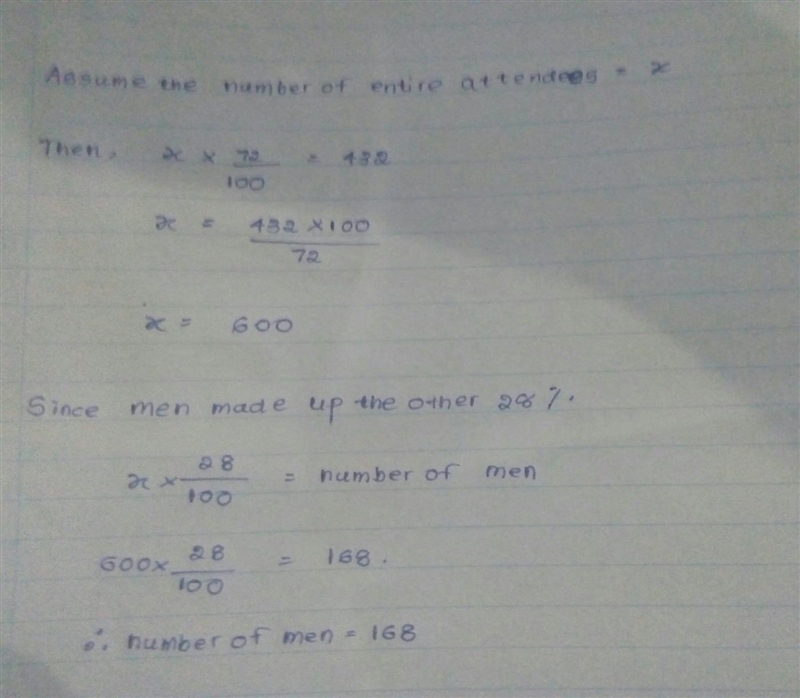 Assume the number of entire attendees = x
Then, x × 72/100 = 432
x = 432 × 100/72
x = 600
Since men made up the other 28%.
x × 28/100 = number of men
600 × 28/100 = 168.
∴ number of men = 168